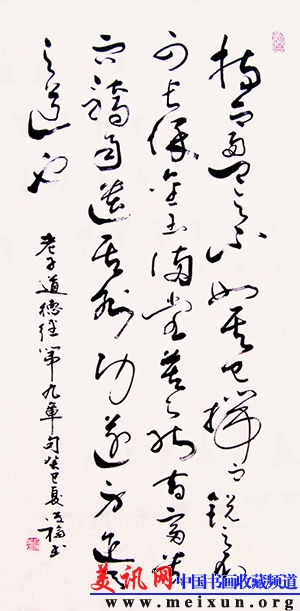 持而盈之不如其已揣而銳之不
可長保金玉滿堂莫之能守富貴
而驕自遺其咎功遂身退天
之道也
老子道德經第九章句癸巳夏福书
美讯网
中国书画收藏频道
www.meixun.org